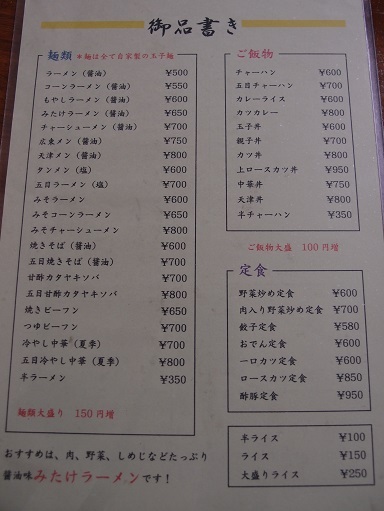 御品書き
麺類 ＊麺は全て自家製の玉子麺
ラーメン（醤油） ¥500
コーンラーメン（醤油） ¥550
もやしラーメン（醤油） ¥600
みたけラーメン（醤油） ¥650
チャーシューメン（醤油） ¥700
広東メン（醤油） ¥750
天津メン（醤油） ¥800
タンメン（塩） ¥600
五目ラーメン（塩） ¥700
みそラーメン ¥600
みそコーンラーメン ¥650
みそチャーシューメン ¥800
焼きそば（醤油） ¥600
五目焼きそば（醤油） ¥700
甘酢カタヤキソバ ¥700
五目甘酢カタヤキソバ ¥800
焼きビーフン ¥650
つゆビーフン ¥700
冷やし中華（夏季） ¥700
五目冷やし中華（夏季） ¥800
半ラーメン ¥350
麺類大盛り 150円増
おすすめは、肉、野菜、しめじなどたっぷり
醤油味みたけラーメンです！
ご飯物
チャーハン ¥600
五目チャーハン ¥700
カレーライス ¥600
カツカレー ¥800
玉子丼 ¥600
親子丼 ¥700
カツ丼 ¥800
上ロースカツ丼 ¥950
中華丼 ¥750
天津丼 ¥800
半チャーハン ¥350
ご飯物大盛 100円増
定食
野菜炒め定食 ¥600
肉入り野菜炒め定食 ¥700
餃子定食 ¥580
おでん定食 ¥600
一口カツ定食 ¥600
ロースカツ定食 ¥850
酢豚定食 ¥950
半ライス ¥100
ライス ¥150
大盛りライス ¥250